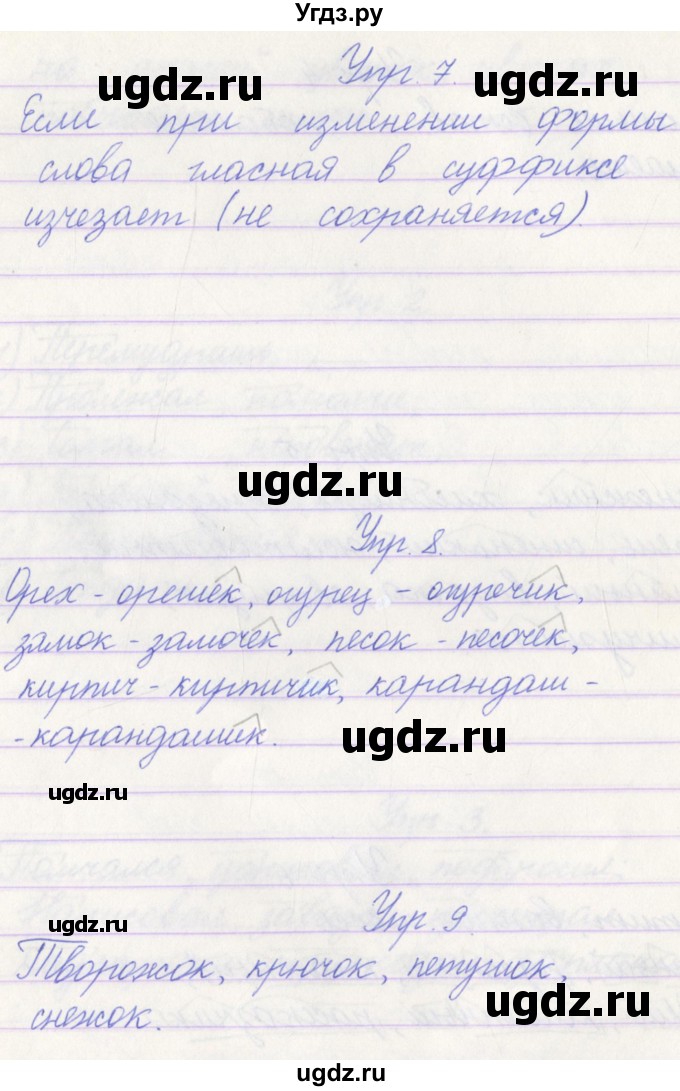 Угдз.ру
Упр. 7.
ugdz.ru ugdz.ru
Если при изменении формы
слова гласная в суффиксе
изчезает (не сохраняется).
ugdz.ru
Упр. 8.
Орех - орешек, огурец - огурчик,
замок - замочек, песок - песочек,
кирпич - кирпичик, карандаш -
- карандашик.
ugdz.ru
ugdz.ru
ugdz.ru
Упр. 9.
Творожок, крючок, петушок,
снежок.
ugdz.ru